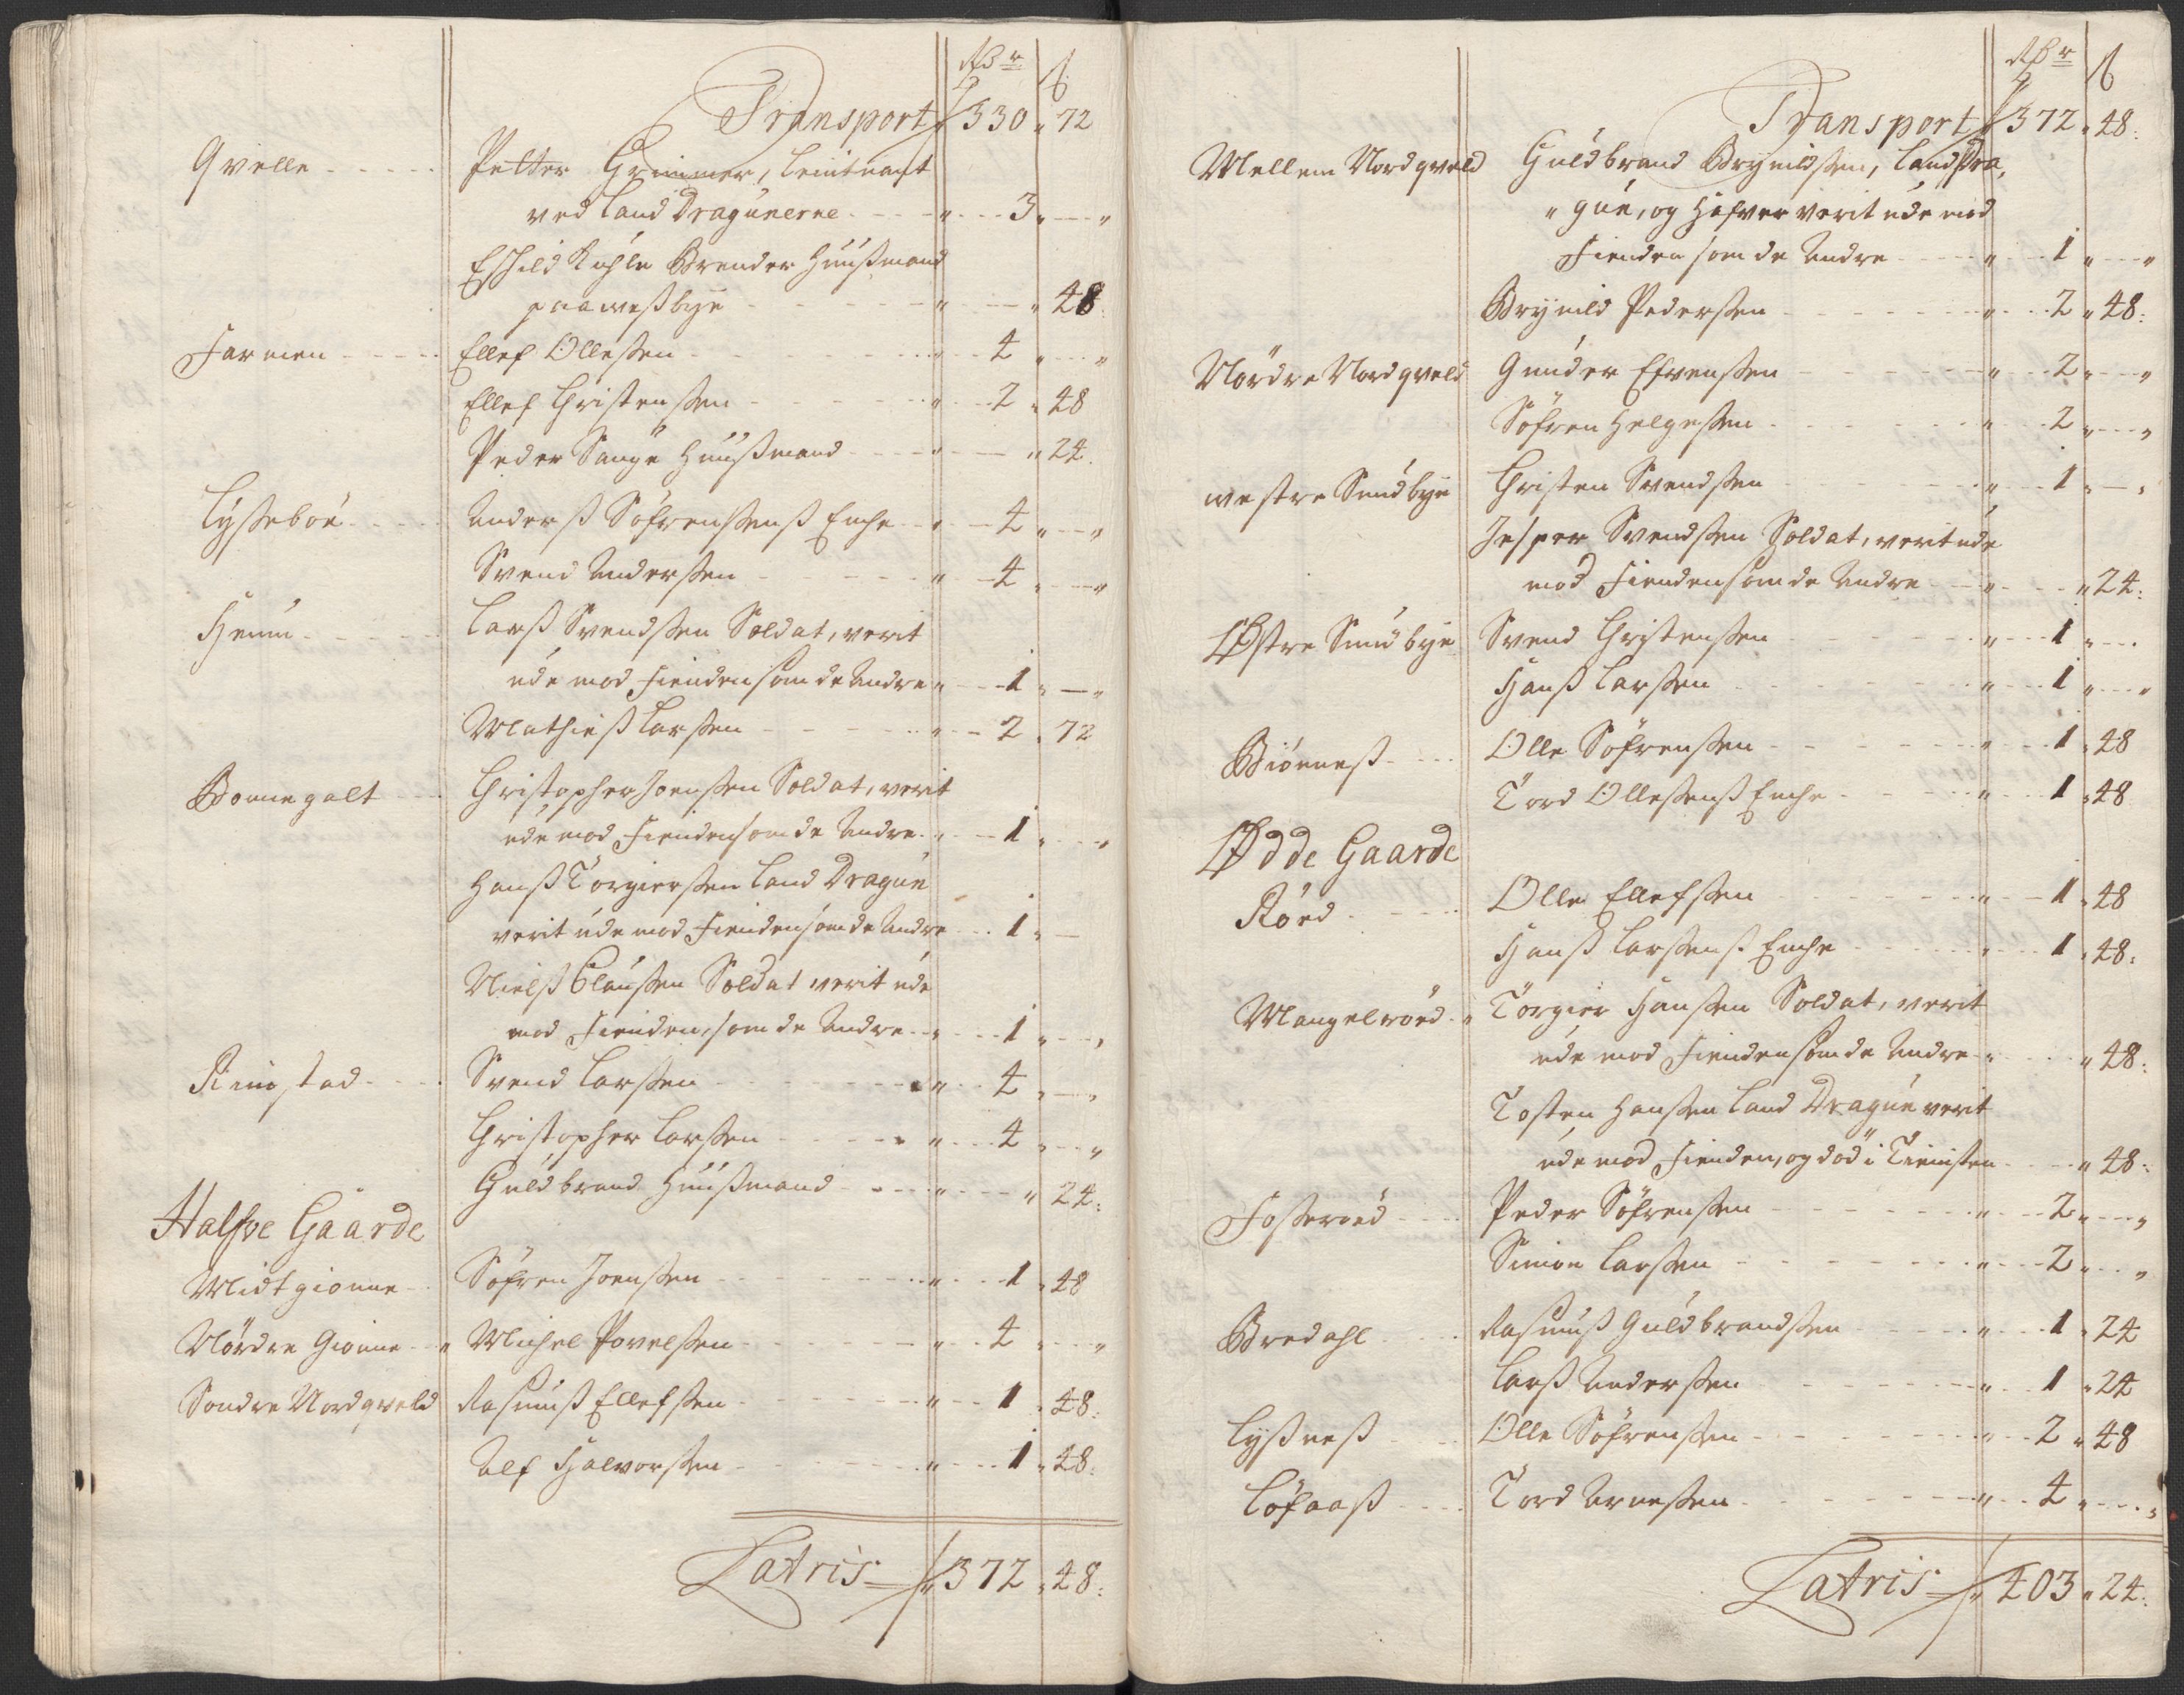 Rdr ß
Transport 330 " 72
Qvelle - - - Petter Grimmer, Leutnant
ved Land Dragunerne - - - " - - 3 " - - "
Eschild Kuhle Brender Huußmand
paa weßbye - - - " - - " 48
Farmen - - - Ellef Olleßen - - - " - - 4 " - - "
Ellef Christenßen - - - " - - 2 " 48
Peder Sauge Huußmand - - - " - - " 24.
Lyßeboe - - - Anderß Söfrenßenß Enche - - " - - 4 " - - "
Svend Anderßen - - - " - - 4 " - - "
Heum - - - Larß Svendßen Soldat, verit
ude mod Fienden som de Andre " - - 1 " - - "
Mathieß Larßen - - - " - - 2 " 72
Bonnegalt - - Christopher Joenßen Soldat, verit
ude mod Fienden som de Andre - " - - 1 " - - "
Hanß Torgierßen Land Dragun
verit ude mod Fienden som de Andre - - 1 " -
Nielß Claußen Soldat verit ude
mod Fienden, som de Andre - - " - - 1 " - - "
Rimstad - - - Svend Larßen - - - " - - 4 " - - "
Christopher Larßen - - - " - - 4 " - - "
Guldbrand Huußmand - - - " - - " 24:
Halfve Gaarde
Midtgionne - - Söfren Joenßen - - - " - - 1 " 48
Nördre Gionne - - " Michel Povelßen - - - " - - 4 " - - "
Sondre Nordqveld Rasmuß Ellefßen - - - " - - 1 " 48:
Alf Halvorßen - - - " - - 1 " 48:
Latris " 372 " 48:
Rdr ß
Transport 372 " 48:
Mellem Nordqveld Guldbrand Brynildßen, Land Dra,
" gun, og Hafver verit ude mod
Fienden som de Andre - - - " - - 1 " - - "
Brynild Pederßen - - - " - - 2 " 48:
Nördre Nordqveld Gunder Efvenßen - - - " - - 2 " - - "
Söfren Helgeßen - - - " - - 2 " - - "
westre Sundbye Christen Svendßen - - - " - - 1 " - "
Jesper Svendßen Soldat, verit ude
mod Fienden som de Andre - - " - - " 24:
Østre Sundbye Svend Christenßen - - - " - - 1 " - -
Hanß Larßen - - - " - - 1 " - - "
Biönneß - - - Olle Söfrenßen - - - " - - 1 " 48
Tord Olleßenß Enche - - - " - - 1 " 48
Ødde Gaarde
Röed - - - Olle Ellefßen - - - " - - 1 " 48
Hanß Larßenß Enche - - - " - - 1 " 48:
Mangelröed - " Törgier Hanßen Soldat, verit
ude mod Fienden som de Andre - " - - " 48:
Tosten Hanßen Land Dragun verit
ude mod Fienden, og död i Tienisten - - " 48:
Foßeröed - - - Peder Söfrenßen - - - " - - 2 " - - "
Simon Larßen - - - " - - 2 " - - "
Bredahl - - - Rasmuß Guldbrandßen - - - " - - 1 " 24
Larß Anderßen - - - " - - 1 " 24
Lyßneß - - - Olle Söfrenßen - - - " - - 2 " 48
Löfaaß - - - Tord Arneßen - - - " - - 4 " - - "
Latris " 403 " 24: